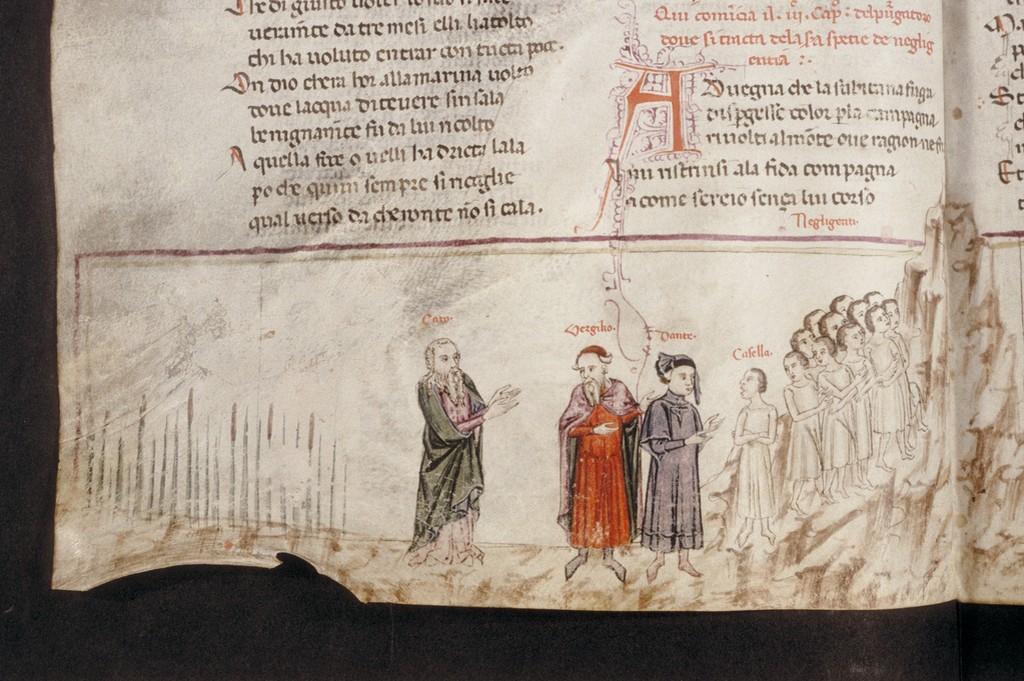 ueramēte da tre mesi elli ha tolto
chi ha uoluto entrar con tucta pace.
On dio chera hor alla marina uolto
doue lacqua di teuere sinsala
benignamēte fu da lui ricolto
A quella foce o uelli ha dricta lala
po che quiui sempre si ricoglie
qual uerso da cheronte nō si cala.
Qui comīcia il .iii. Cap. del purgatoro
doue si tracta dela sa spetie de neglig
entia :.
Aduegna che la subitana fuga
dispgesse color p la campagna
riuolti al mōte oue ragion ne
mi ristrinsi ala fida compagna
a come sereio sença lui corso
Negligenti.
Cato.
Vergilio.
Dante.
Casella.